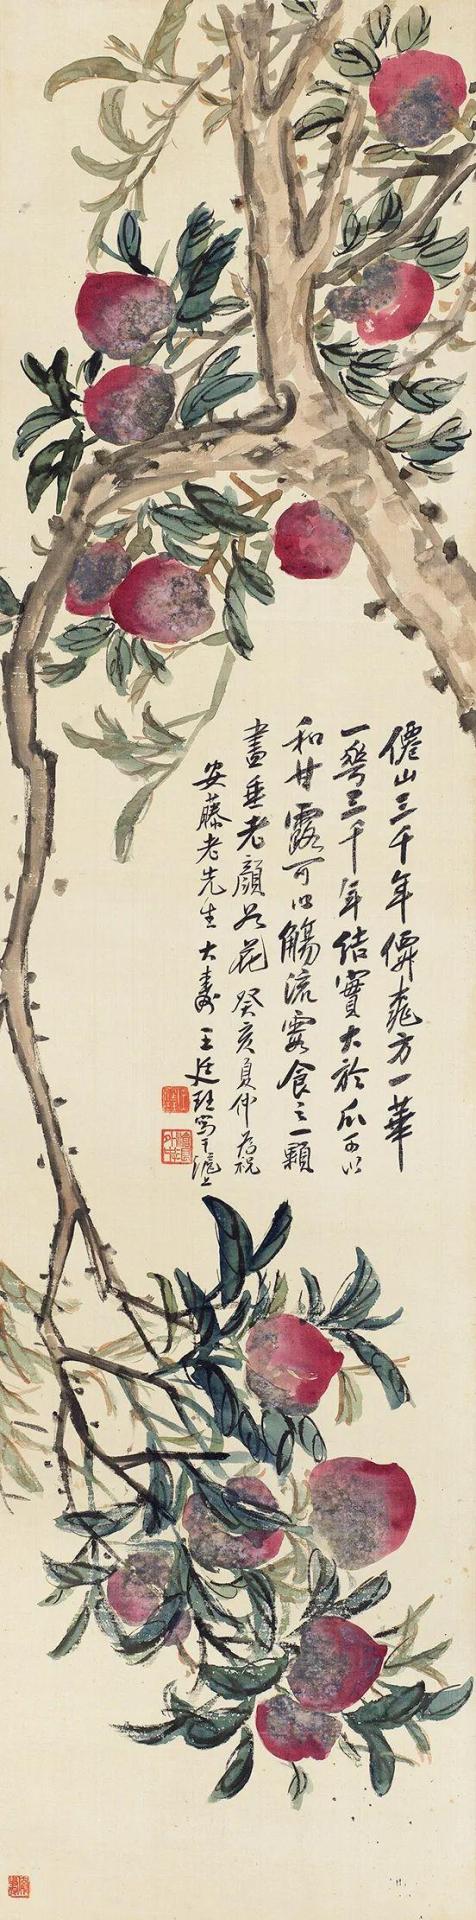 僊山三千年僊桃方一華
一華三千年結實大於瓜可以
和甘露可以觴流霞食之一顆
盡垂老顏如花癸亥夏仲為祝
安藤老先生大壽王廷珏寫于滬上